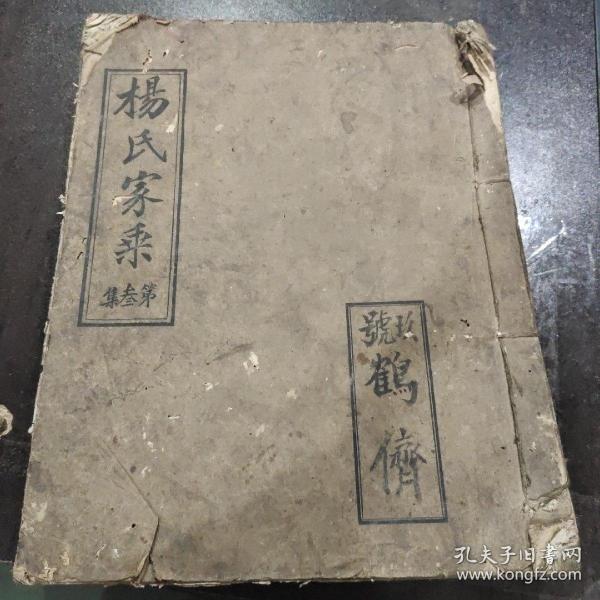 楊氏家乘
第叁集
玖號
鶴儕
孔夫子旧書网
www.kongfz.com